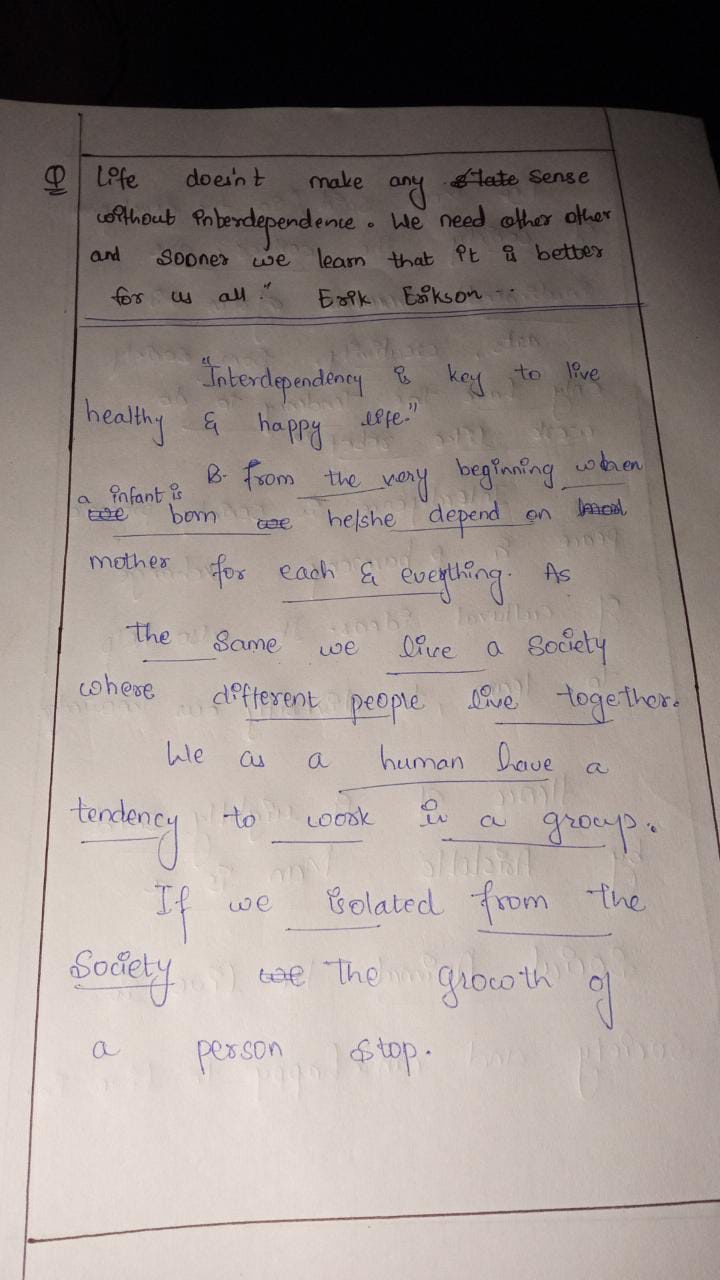 Q Life doesn't make any state sense
without interdependence. We need other other
and sooner we learn that it is better
for us all." Erik Erikson -..
"Interdependency is key to live
healthy & happy life."
B. from the very beginning when
a infant is
we born we he/she depend on
mother for each & eveything. As
the same we live a society
where different people live together.
We as a human have a
tendency to work in a group.
If we isolated from the
Society we the growth of
a person stop.